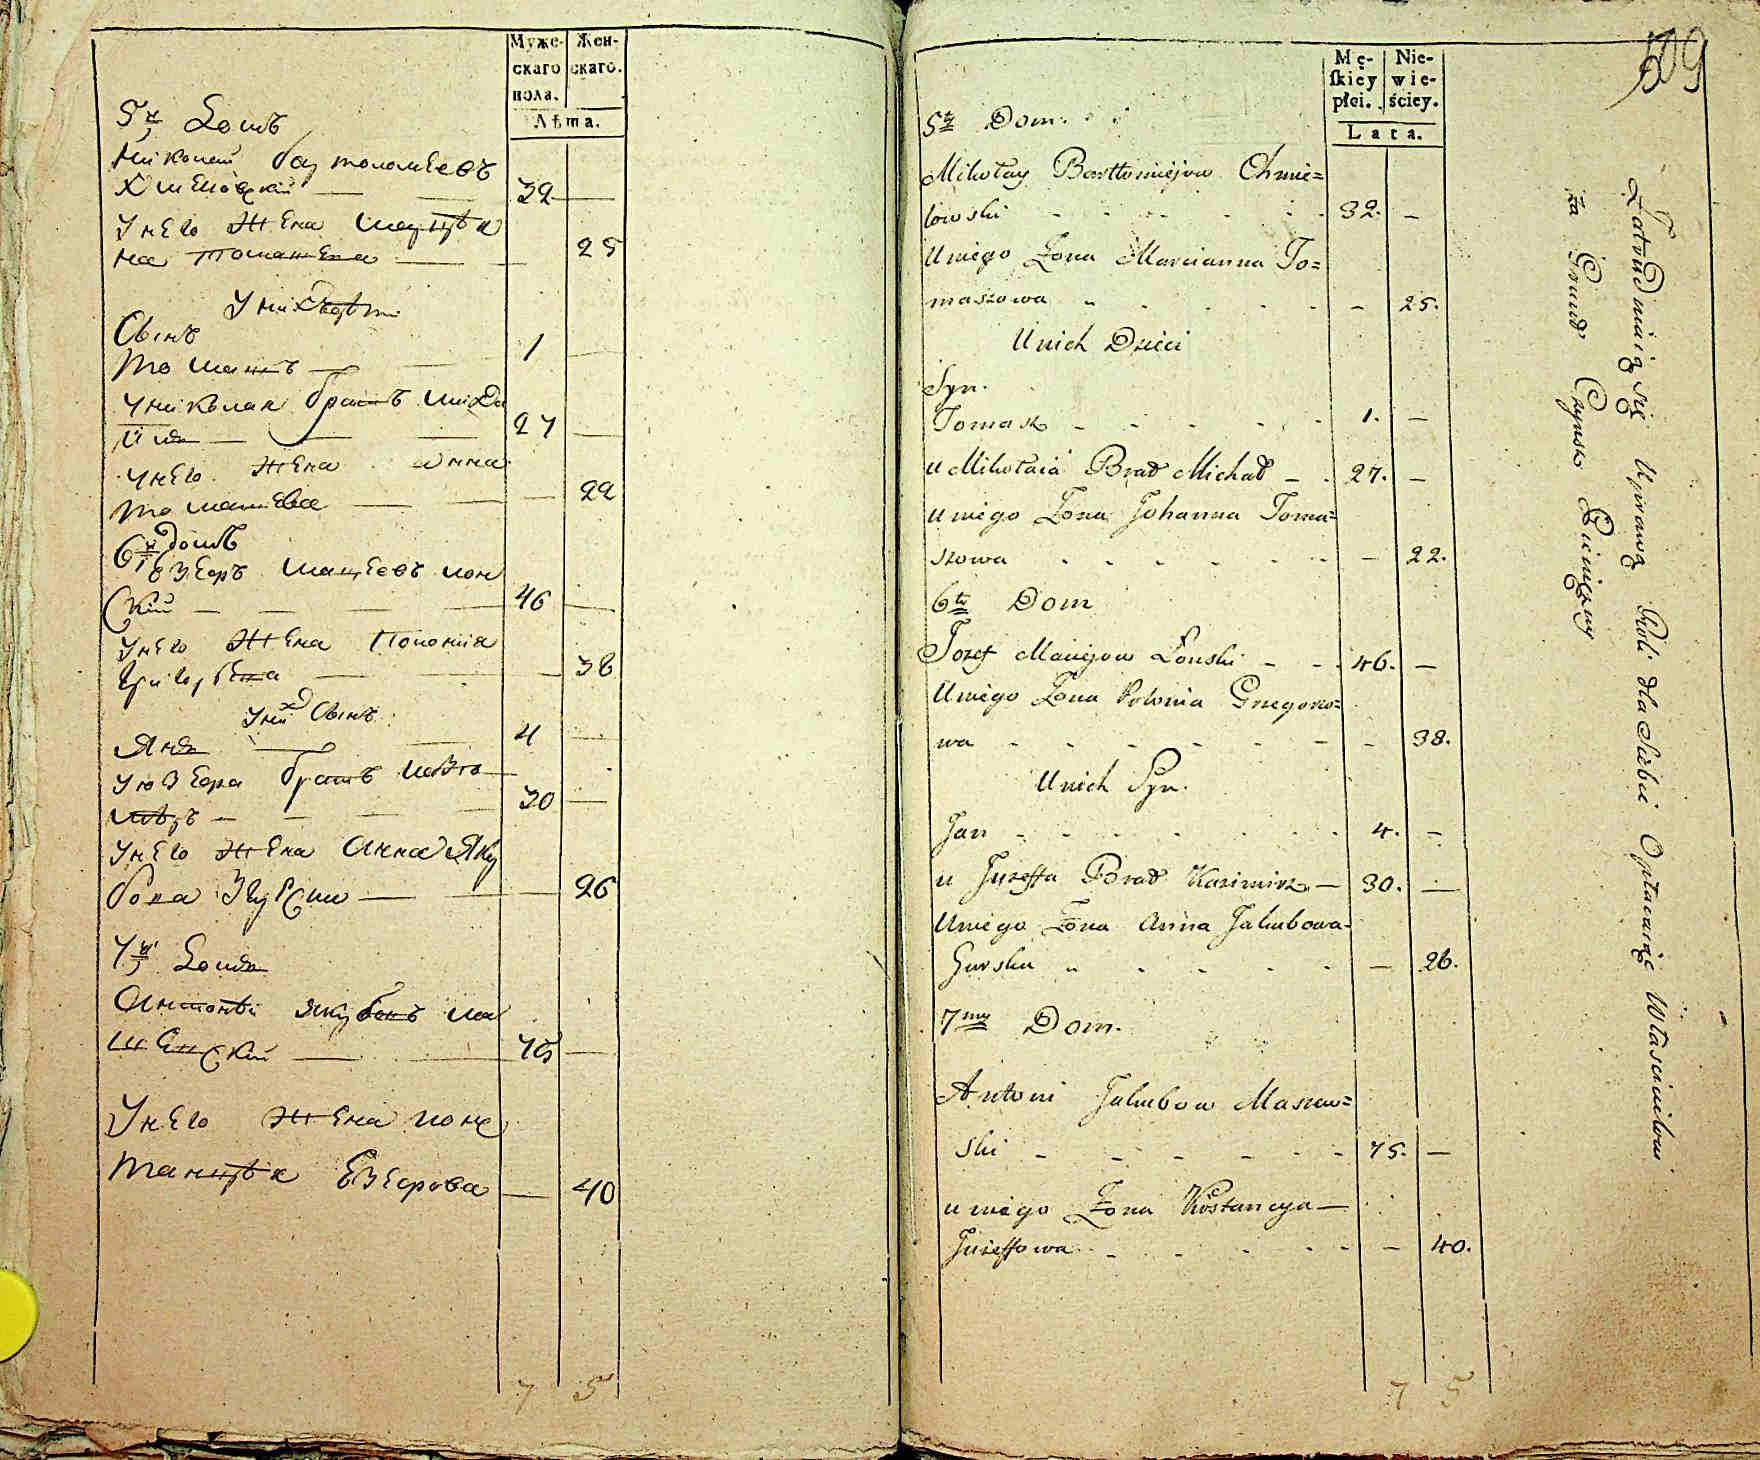 Муже-
скаго
пола.
Жен-
скаго.
Лѣта.
5й Домъ
Николай бартоломеевъ
Хмелевскій 32
Унего Жена Марцѣя
на Томашева 25
Унихъ Дѣти
Сынъ
Томашъ 1
Униколая братъ Миха
илъ 27
Унего Жена Анна
Томашева 22
6й домъ
Езефъ Мацеевъ Лон
скій 46
Унего Жена Полонія
Григорева 38
Унихъ Сынъ
Янъ 4
Уюзефа братъ
30
Унего Жена Анна Яку
бова Згурски 26
7й Домъ
Антоній Якубовъ Ма
шевскій 75
Унего Жена Конс
танцѣя Езефова 40
7 5
509
Mę-
skiey
płci.
Nie-
wie-
ściey.
Lata.
5ty Dom.
Mikołay Bartłomiejow Chmie=
lowski 32. –
Uniego Zona Marcianna To=
maszowa – 25.
Unich Dzieci
Syn.
Tomasz 1. –
u Mikołaia Brad Michał 27. –
uniego Zona Johanna Toma=
szowa – 22.
6ty Dom
Jozef Maciejow Łonski 46. –
Uniego Zona Polonia Grzegorzo=
wa – 38.
Unich Syn.
Jan 4. –
u Juzeffa Brad Kazimirz 30. –
Uniego Zona Anna Jakubowa
Gurska – 26.
7my Dom.
Antoni Jakubow Maszew=
ski 75. –
uniego Zona Kostancya
Juzeffowa – 40.
7 5
Zatrudniaią się Uprawą Roli dla Siebie Opłacaiąc Właścicielowi
za Grund Czynsz Pieniężny